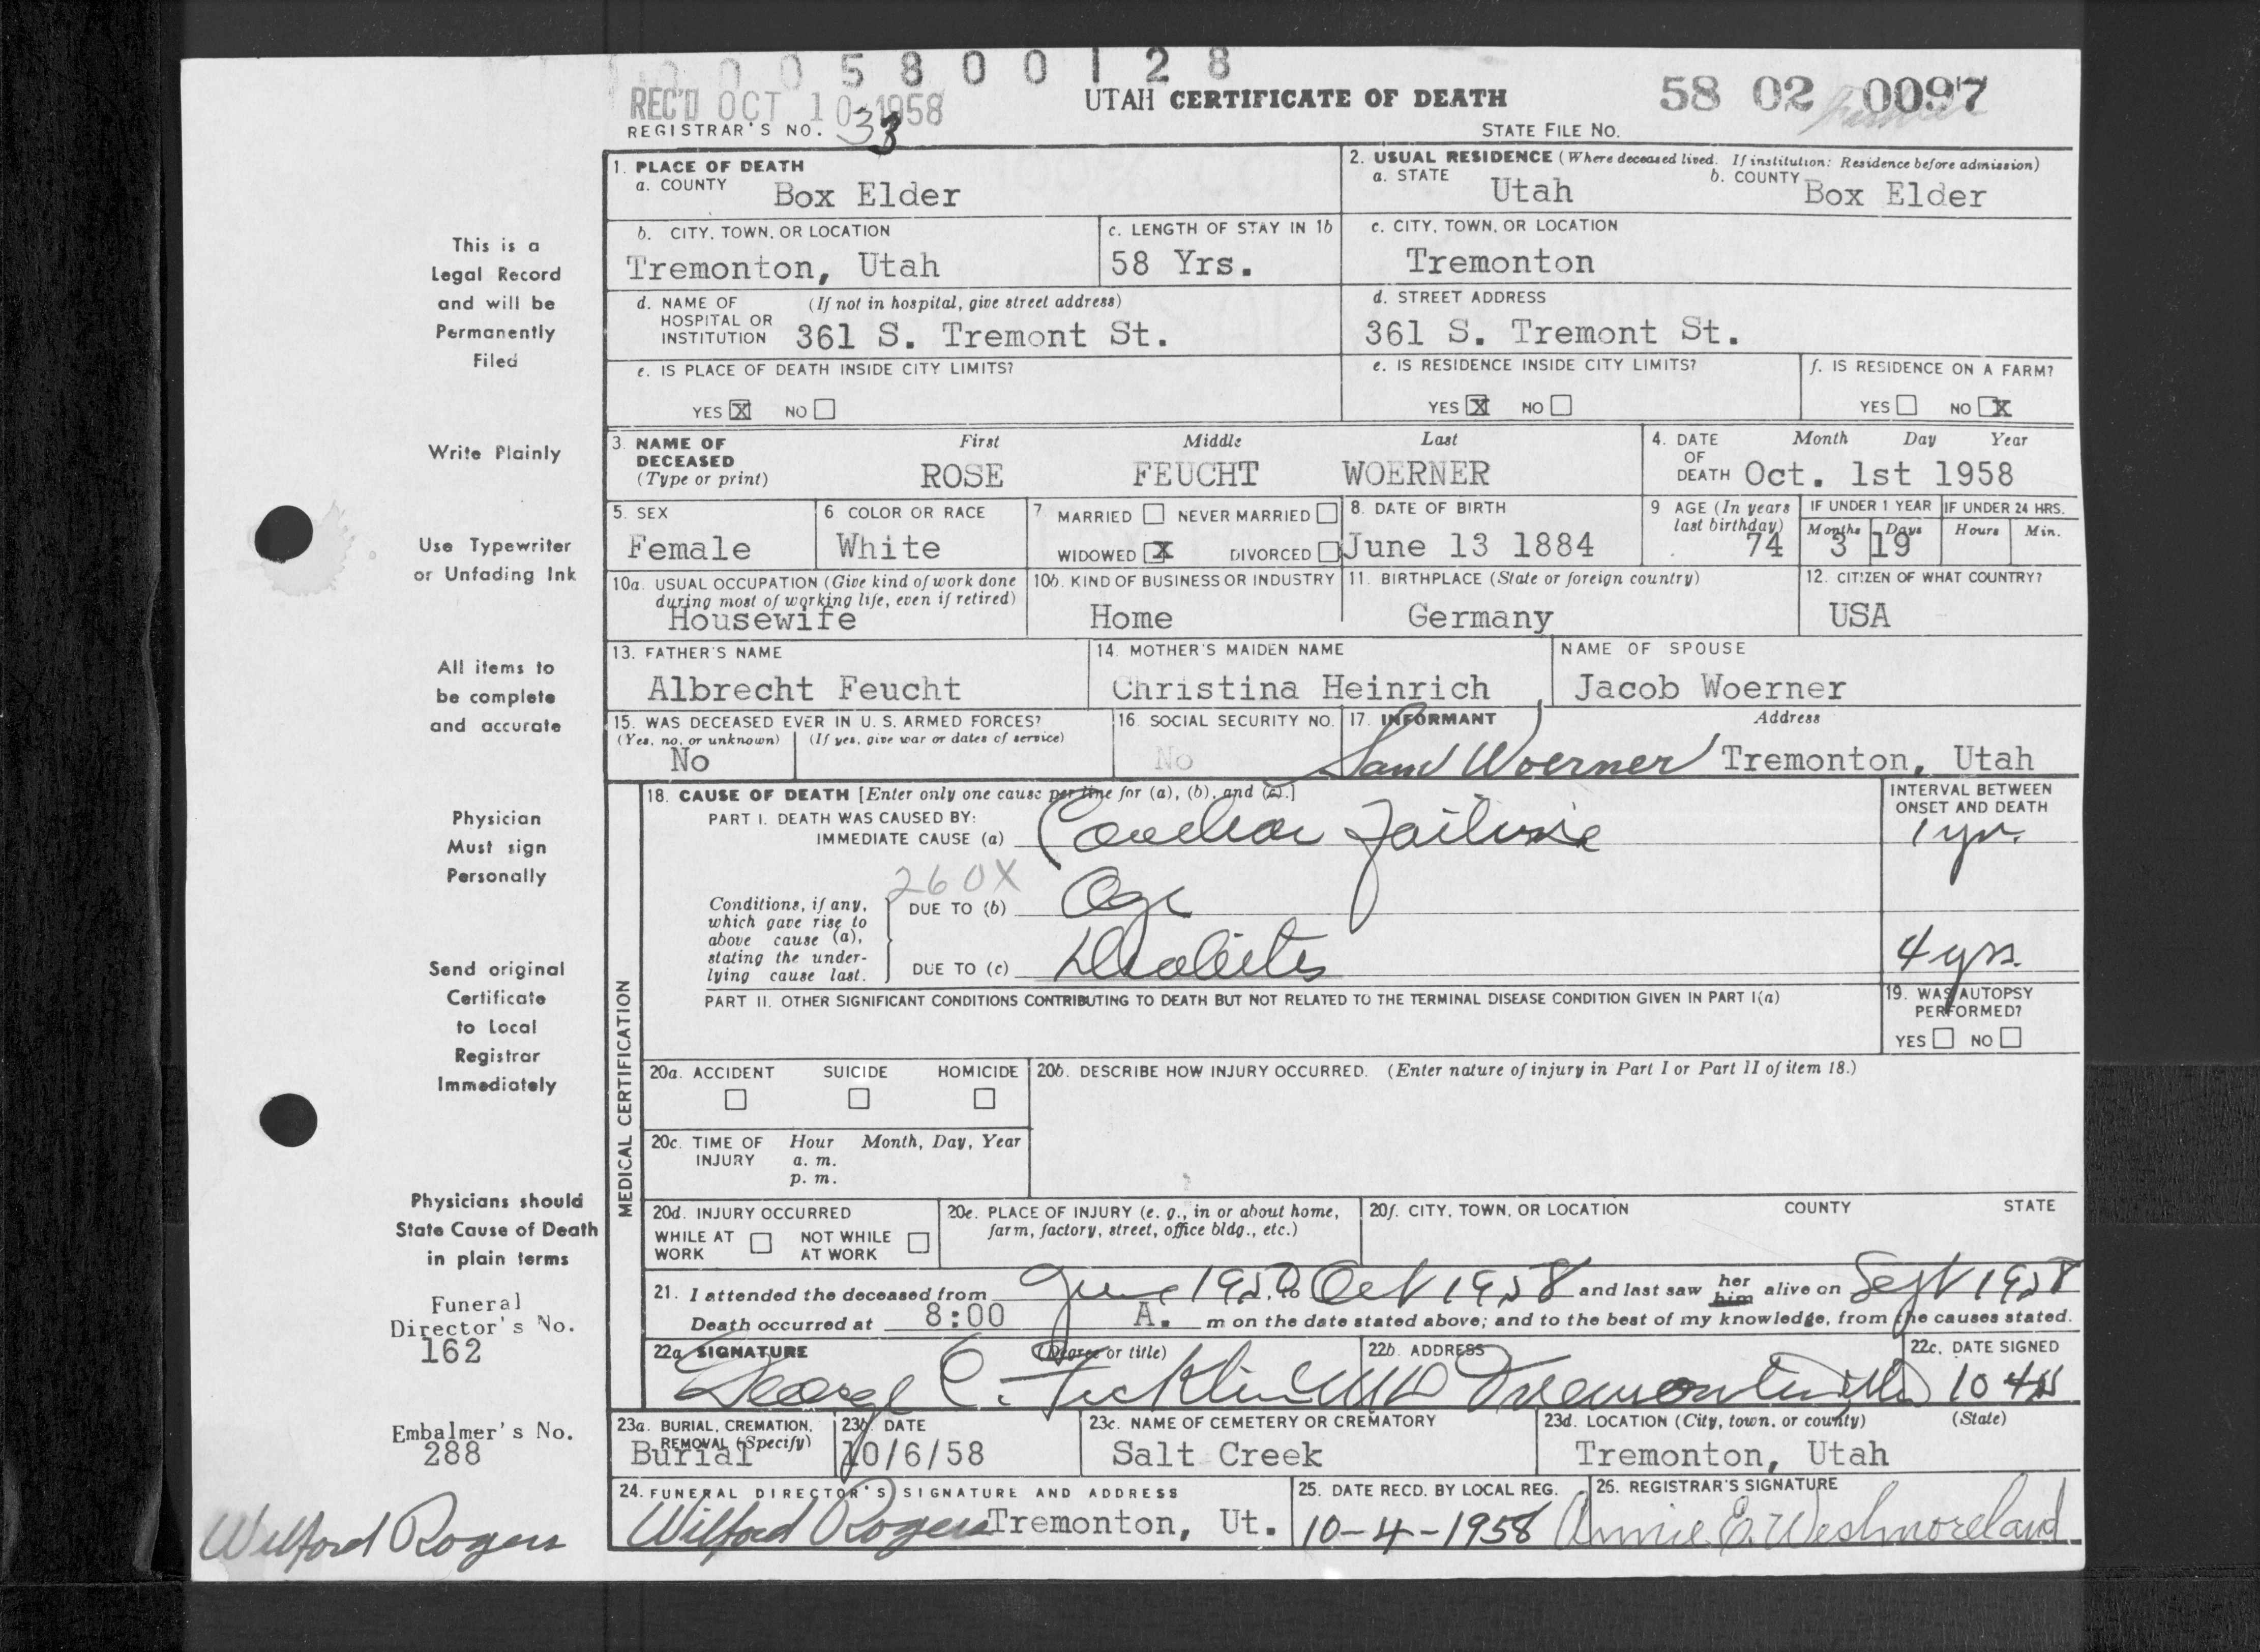 0 0 0 5 8 0 0 1 2 8
REC'D OCT 10 1958
UTAH CERTIFICATE OF DEATH
58 02 0097
REGISTRAR'S NO. 33
STATE FILE NO.
This is a
Legal Record
and will be
Permanently
Filed
Write Plainly
Use Typewriter
or Unfading Ink
All items to
be complete
and accurate
Physician
Must sign
Personally
Send original
Certificate
to Local
Registrar
Immediately
Physicians should
State Cause of Death
in plain terms
Funeral
Director's No.
162
Embalmer's No.
288
Wilford Rogers
1. PLACE OF DEATH
a. COUNTY Box Elder
2. USUAL RESIDENCE (Where deceased lived. If institution: Residence before admission)
a. STATE Utah b. COUNTY Box Elder
b. CITY, TOWN, OR LOCATION
Tremonton, Utah
c. LENGTH OF STAY IN 1b
58 Yrs.
c. CITY, TOWN, OR LOCATION
Tremonton
d. NAME OF HOSPITAL OR INSTITUTION (If not in hospital, give street address)
361 S. Tremont St.
d. STREET ADDRESS
361 S. Tremont St.
e. IS PLACE OF DEATH INSIDE CITY LIMITS?
YES X NO
e. IS RESIDENCE INSIDE CITY LIMITS?
YES X NO
f. IS RESIDENCE ON A FARM?
YES NO X
3. NAME OF DECEASED (Type or print)
First Middle Last
ROSE FEUCHT WOERNER
4. DATE OF DEATH
Month Day Year
Oct. 1st 1958
5. SEX
Female
6. COLOR OR RACE
White
7. MARRIED NEVER MARRIED
WIDOWED X DIVORCED
8. DATE OF BIRTH
June 13 1884
9 AGE (In years last birthday)
74
IF UNDER 1 YEAR
Months Days
3 19
IF UNDER 24 HRS.
Hours Min.
10a. USUAL OCCUPATION (Give kind of work done during most of working life, even if retired)
Housewife
10b. KIND OF BUSINESS OR INDUSTRY
Home
11. BIRTHPLACE (State or foreign country)
Germany
12. CITIZEN OF WHAT COUNTRY?
USA
13. FATHER'S NAME
Albrecht Feucht
14. MOTHER'S MAIDEN NAME
Christina Heinrich
NAME OF SPOUSE
Jacob Woerner
15. WAS DECEASED EVER IN U. S. ARMED FORCES?
(Yes, no, or unknown) (If yes, give war or dates of service)
No
16. SOCIAL SECURITY NO.
No
17. INFORMANT Address
Sam Woerner Tremonton, Utah
MEDICAL CERTIFICATION
18. CAUSE OF DEATH [Enter only one cause per line for (a), (b), and (c).]
PART I. DEATH WAS CAUSED BY:
IMMEDIATE CAUSE (a) Cardiac Failure
INTERVAL BETWEEN ONSET AND DEATH
1 yr.
260X
Conditions, if any, which gave rise to above cause (a), stating the underlying cause last.
DUE TO (b) Age
DUE TO (c) Diabetes
4 yrs.
PART II. OTHER SIGNIFICANT CONDITIONS CONTRIBUTING TO DEATH BUT NOT RELATED TO THE TERMINAL DISEASE CONDITION GIVEN IN PART I(a)
19. WAS AUTOPSY PERFORMED?
YES NO
20a. ACCIDENT SUICIDE HOMICIDE
20b. DESCRIBE HOW INJURY OCCURRED. (Enter nature of injury in Part I or Part II of item 18.)
20c. TIME OF INJURY Hour Month, Day, Year
a. m.
p. m.
20d. INJURY OCCURRED
WHILE AT WORK NOT WHILE AT WORK
20e. PLACE OF INJURY (e. g., in or about home, farm, factory, street, office bldg., etc.)
20f. CITY, TOWN, OR LOCATION COUNTY STATE
21. I attended the deceased from June to Oct 1958 and last saw her him alive on Sept 1958
Death occurred at 8:00 A. m on the date stated above; and to the best of my knowledge, from the causes stated.
22a SIGNATURE (Degree or title)
George C. Ficklin MD
22b. ADDRESS
Tremonton
22c. DATE SIGNED
10
23a. BURIAL, CREMATION, REMOVAL (Specify)
Burial
23b. DATE
10/6/58
23c. NAME OF CEMETERY OR CREMATORY
Salt Creek
23d. LOCATION (City, town, or county) (State)
Tremonton, Utah
24. FUNERAL DIRECTOR'S SIGNATURE AND ADDRESS
Wilford Rogers Tremonton, Ut.
25. DATE RECD. BY LOCAL REG.
10-4-1958
26. REGISTRAR'S SIGNATURE
Annie E. Westmoreland